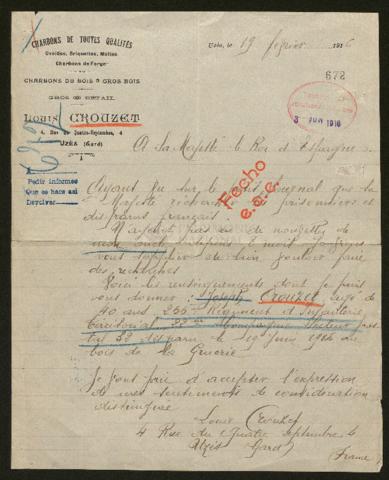 CHARBONS DE TOUTES QUALITÉS
Ovoïdes, Briquettes, Mottes
Charbons de Forge
CHARBONS DE BOIS & GROS BOIS
GROS & DÉTAIL
LOUIS CROUZET
4, Rue du Quatre-Septembre, 4
UZÈS (Gard)
Uzès, le 19 février 1916
672
3 JUN 1916
Pedir informes
Que se hace así
Devolver
Hecho
e.a.c.
A Sa Majesté le Roi d'Espagne
Ayant lu sur le petit journal que sa
Majesté prisonniers et
disparus français
N'ayant pas de nouvelles de
mon oncle depuis 8 mois
vous supplier de bien vouloir faire
des recherches
Voici les renseignements dont je puis
vous donner : Joseph Crouzet âgé de
40 ans 255 Régiment d'Infanterie
22e Compagnie Secteur pos
tal 39 disparu le 19 juin au
bois de la Grurie
Je vous prie d'accepter l'expression
de mes sentiments de considération
distinguée
Louis Crouzet
4 Rue du Quatre Septembre 4
Uzès Gard
(France)